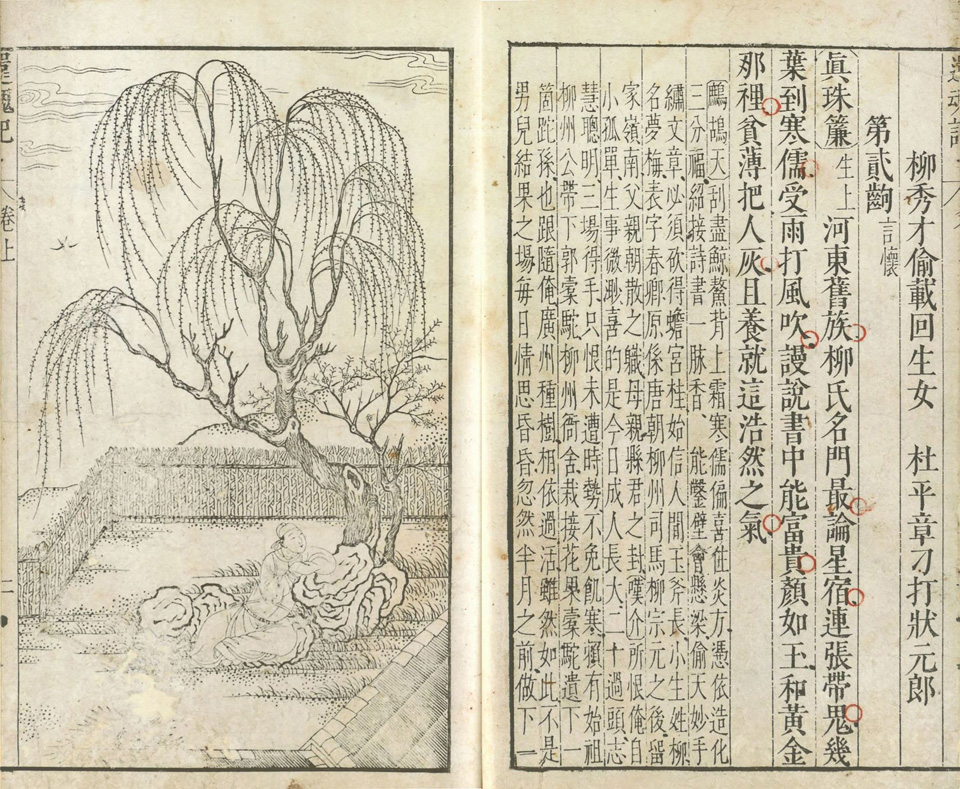 柳秀才偷載回生女　杜平章刁打狀元郎
第貳齣言懷
真珠簾生上河東舊族柳氏名門最論星宿連張帶鬼幾
葉到寒儒受雨打風吹謾說書中能富貴顏如玉和黃金
那裡貧薄把人灰且養就這浩然之氣
鷓鴣天刮盡鯨鰲背上霜寒儒偏喜住炎方憑依造化
三分福紹接詩書一脉香能鑿壁會懸梁偷天妙手
繡文章必須砍得蟾宮桂始信人間玉斧長小生姓柳
名夢梅表字春卿原係唐朝柳州司馬柳宗元之後留
家嶺南父親朝散之職母親縣君之封嘆介所恨俺自
小孤單生事微渺喜的是今日成人長大二十過頭志
慧聰明三場得手只恨未遭時勢不免飢寒賴有始祖
柳州公帶下郭橐駝柳州衙舍栽接花果橐駝遺下一
箇跎孫也跟隨俺廣州種樹相依過活雖然如此不是
男兒結果之場每日情思昏昏忽然半月之前做下一
還魂記
卷上
二